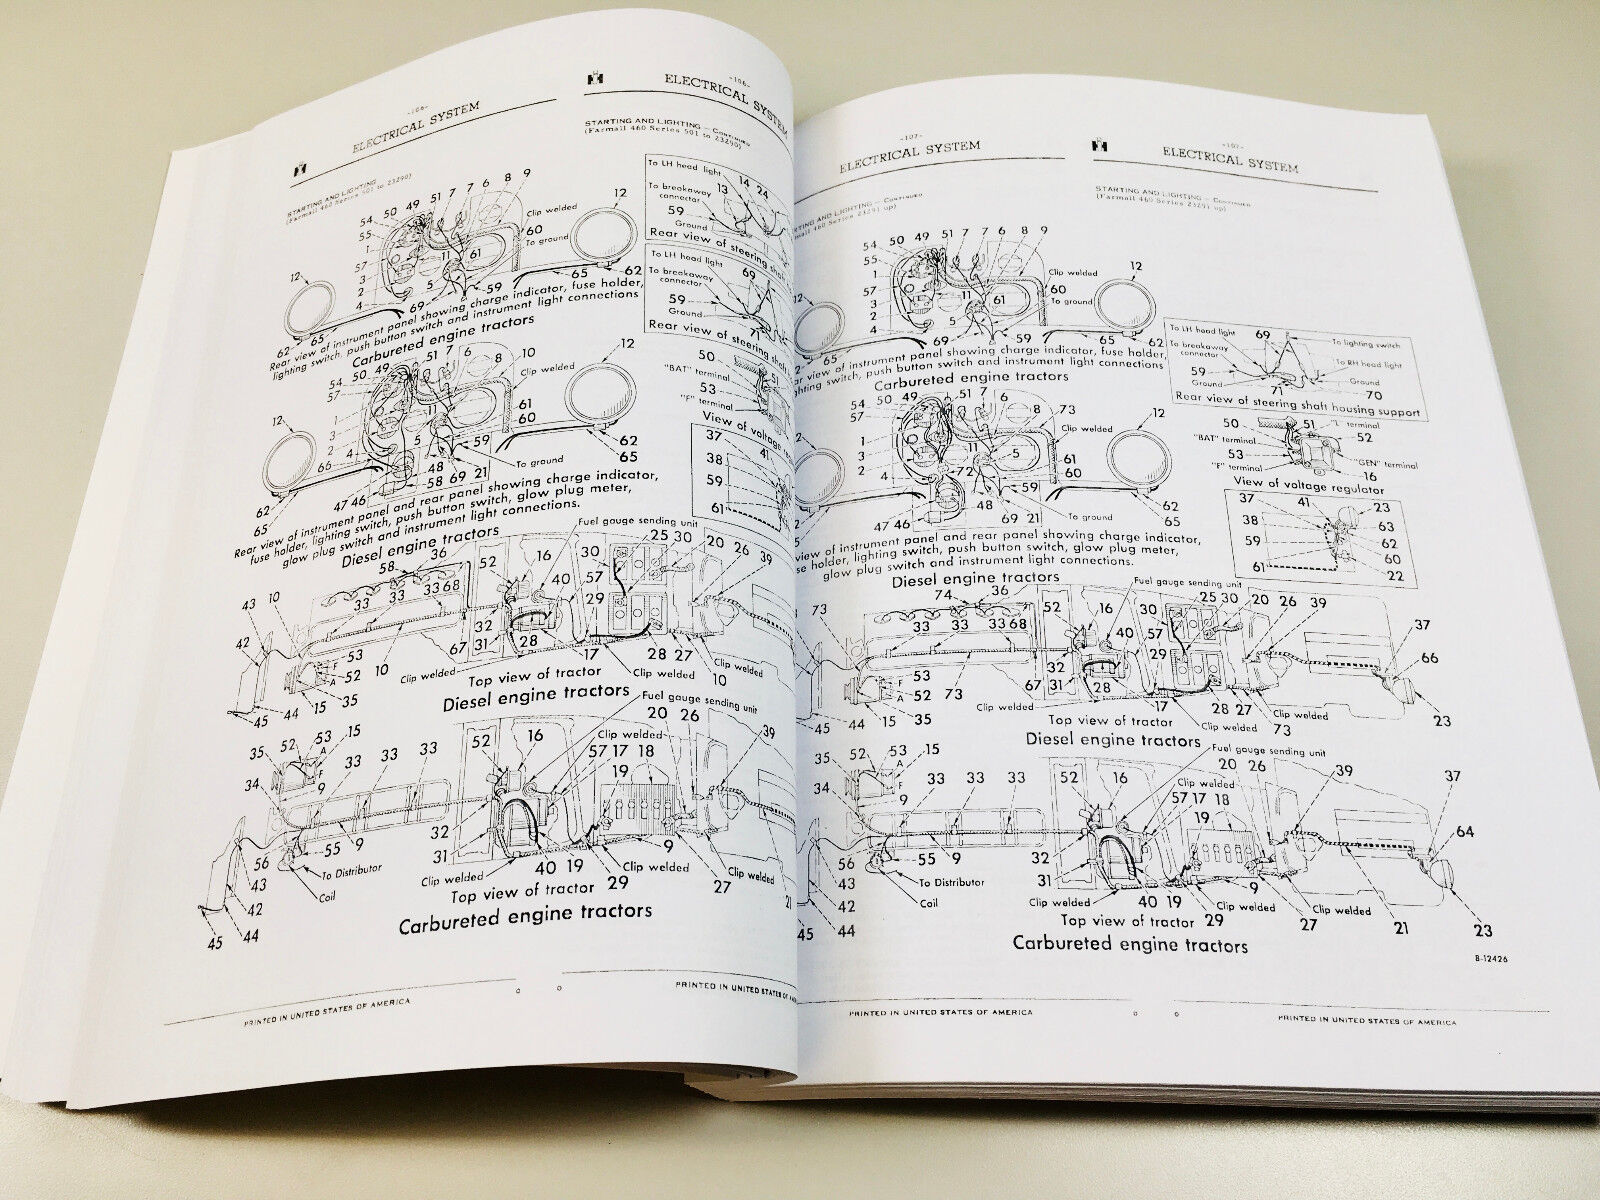 -106-
ELECTRICAL SYSTEM
STARTING AND LIGHTING
(Farmall 460 Series 501 to 23290)
54 50 49 51 7 7 6 8 9
55
1
57
3
2
4
11
5
61
12
Clip welded
60
To ground
12
69
59
65
62
62
65
Rear view of instrument panel showing charge indicator, fuse holder,
lighting switch, push button switch and instrument light connections
Carbureted engine tractors
54 50 49 51 7 6 8 10
57
Clip welded
12
12
1
3
2
4
11
5
61
60
59
62
65
66
48
To ground
47 46 58 69 21
62
65
Rear view of instrument panel and rear panel showing charge indicator,
fuse holder, lighting switch, push button switch, glow plug meter,
glow plug switch and instrument light connections.
Diesel engine tractors
Fuel gauge sending unit
58 36 52 16 30 25 30 20 26 39
43 10 33 33 33 68 40 57
42 32 29
53
F
52
A
10
67 31 28 17 28 27
Clip welded
Clip welded
Clip welded
10
45 44 15 35
Top view of tractor
Diesel engine tractors
Fuel gauge sending unit
20 26
35 52 53 15
A
F
9
33 33 33
52 16
Clip welded
57 17 18
19
39
34
32
31
56 55 9
To Distributor
Coil
43
42
45 44
40 19 29
9
Clip welded
Clip welded
27
Clip welded
21
Top view of tractor
Carbureted engine tractors
PRINTED IN UNITED STATES OF AMERICA
-106-
ELECTRICAL SYSTEM
STARTING AND LIGHTING — Continued
(Farmall 460 Series 501 to 23290)
To LH head light
14 24
13
To breakaway
connector
59
Ground
Rear view of steering
To LH head light
69
To breakaway
connector
59
Ground
71
Rear view of steering
50
51
"BAT" terminal
53
"F" terminal
View of voltage
37
41
38
59
61
PRINTED IN UNITED STATES OF
-107-
ELECTRICAL SYSTEM
AND LIGHTING — Continued
460 Series 23291 up)
54 50 49 51 7 7 6 8 9
55
1
57
3
2
4
11
61
5
Clip welded
60
To ground
12
69
59
65
62
65
view of instrument panel showing charge indicator, fuse holder,
switch, push button switch and instrument light connections
Carbureted engine tractors
54 50 49 51 7 6 8 73
57
Clip welded
12
1
3
2
4
11
5
61
60
72
59
62
65
48
47 46
69 21
To ground
view of instrument panel and rear panel showing charge indicator,
holder, lighting switch, push button switch, glow plug meter,
glow plug switch and instrument light connections.
Diesel engine tractors
Fuel gauge sending unit
74 36 52 16 30 25 30 20 26 39
73 33 33 33 68 40 57 37
32 29 66
53
F
52
A
73
67 31 28 17 28 27
Clip welded
Clip welded
Clip welded
73
23
45 44 15 35
Top view of tractor
Diesel engine tractors
Fuel gauge sending unit
20 26
35 52 53 15
A
F
9
33 33 33
52 16
Clip welded
57 17 18
19
39
37
34
64
32
31
56 55 9
To Distributor
Coil
43
42
45 44
40 19 29
9
Clip welded
Clip welded
27
Clip welded
21
23
Top view of tractor
Carbureted engine tractors
B-12426
PRINTED IN UNITED STATES OF AMERICA
-107-
ELECTRICAL SYSTEM
STARTING AND LIGHTING — Continued
(Farmall 460 Series 23291 up)
To LH head light
69
To lighting switch
To breakaway
connector
To RH head light
59
Ground
71
Ground
70
Rear view of steering shaft housing support
50
51
"L" terminal
52
"BAT" terminal
53
"F" terminal
"GEN" terminal
16
View of voltage regulator
37
41
23
38
63
59
62
60
61
22
PRINTED IN UNITED STATES OF AMERICA